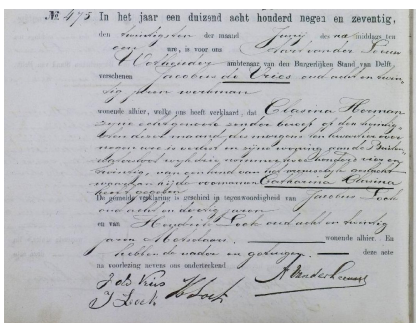 No. 475 In het jaar een duizend acht honderd negen en zeventig,
den twintigsten der maand Junij des na middags ten
een ure, is voor ons van der Leeuw
Wethouder ambtenaar van den Burgerlijken Stand van Delft
verschenen Jacobus de Vries oud acht en
tig jaren werkman
wonende alhier, welke ons heeft verklaard, dat Clasina Hoeman
zijne echtgenoote zonder beroep op den
van deze maand, des morgens ten kwartier over
is bevallen in zijne woning aan de
nommer honderd vier en
van een kind van het vrouwelijk geslacht
waaraan hij de voornamen Catharina Clasina
heeft gegeven
De gemelde verklaring is geschied in tegenwoordigheid van Jacobus Loek
oud acht en dertig jaren
en van Hendrik Loek oud acht en twintig
jaren Metselaars wonende alhier. En
hebben de vader en getuigen deze acte
na voorlezing nevens ons onderteekend.
J de Vries
J Loek H Loek A van der Leeuw